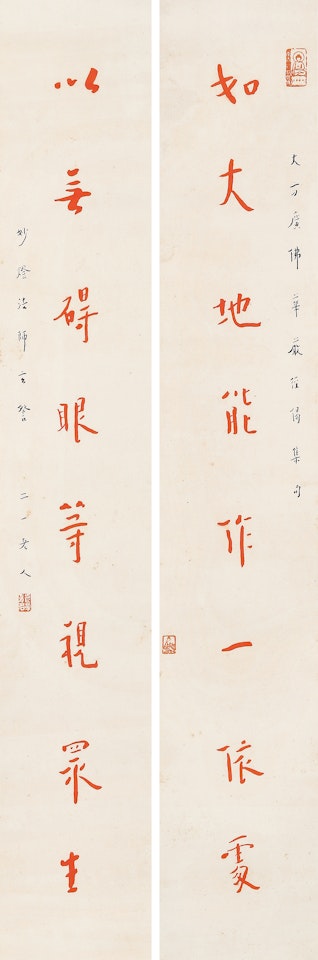 大方廣佛華嚴經偈集句
如大地能作一依處
以無碍眼等視眾生
妙燈法師玄詧 二一老人